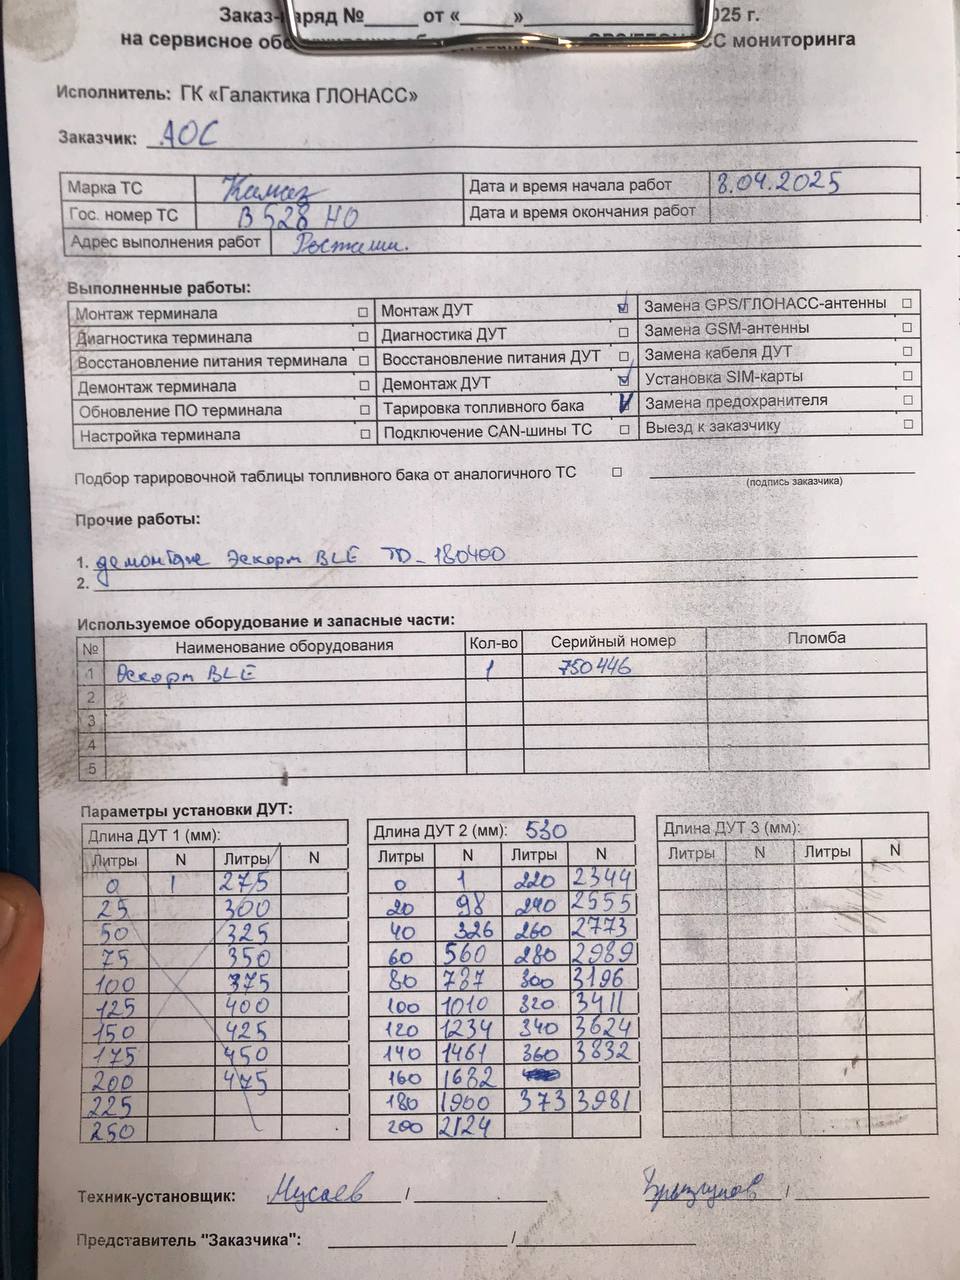 Заказ-наряд №_____ от «_____»_________________2025 г.
на сервисное обо GPS/ГЛОНАСС мониторинга
Исполнитель: ГК «Галактика ГЛОНАСС»
Заказчик: АОС
Марка ТС Камаз Дата и время начала работ 8.04.2025
Гос. номер ТС В 528 НО Дата и время окончания работ
Адрес выполнения работ
Выполненные работы:
Монтаж терминала ☐ Монтаж ДУТ ☑ Замена GPS/ГЛОНАСС-антенны ☐
Диагностика терминала ☐ Диагностика ДУТ ☐ Замена GSM-антенны ☐
Восстановление питания терминала ☐ Восстановление питания ДУТ ☐ Замена кабеля ДУТ ☐
Демонтаж терминала ☐ Демонтаж ДУТ ☑ Установка SIM-карты ☐
Обновление ПО терминала ☐ Тарировка топливного бака ☑ Замена предохранителя ☐
Настройка терминала ☐ Подключение CAN-шины ТС ☐ Выезд к заказчику ☐
Подбор тарировочной таблицы топливного бака от аналогичного ТС ☐
(подпись заказчика)
Прочие работы:
1. демонтаж Эскорт BLE TD_180400
2.
Используемое оборудование и запасные части:
№ Наименование оборудования Кол-во Серийный номер Пломба
1 Эскорт BLE 1 750446
2
3
4
5
Параметры установки ДУТ:
Длина ДУТ 1 (мм): Длина ДУТ 2 (мм): 530 Длина ДУТ 3 (мм):
Литры N Литры N Литры N Литры N Литры N Литры N
0 1 275 0 1 220 2344
25 300 20 98 240 2555
50 325 40 326 260 2773
75 350 60 560 280 2989
100 375 80 787 300 3196
125 400 100 1010 320 3411
150 425 120 1234 340 3624
175 450 140 1461 360 3832
200 475 160 1682
225 180 1900 373 3981
250 200 2124
Техник-установщик: Мусаев / /
Представитель "Заказчика": /